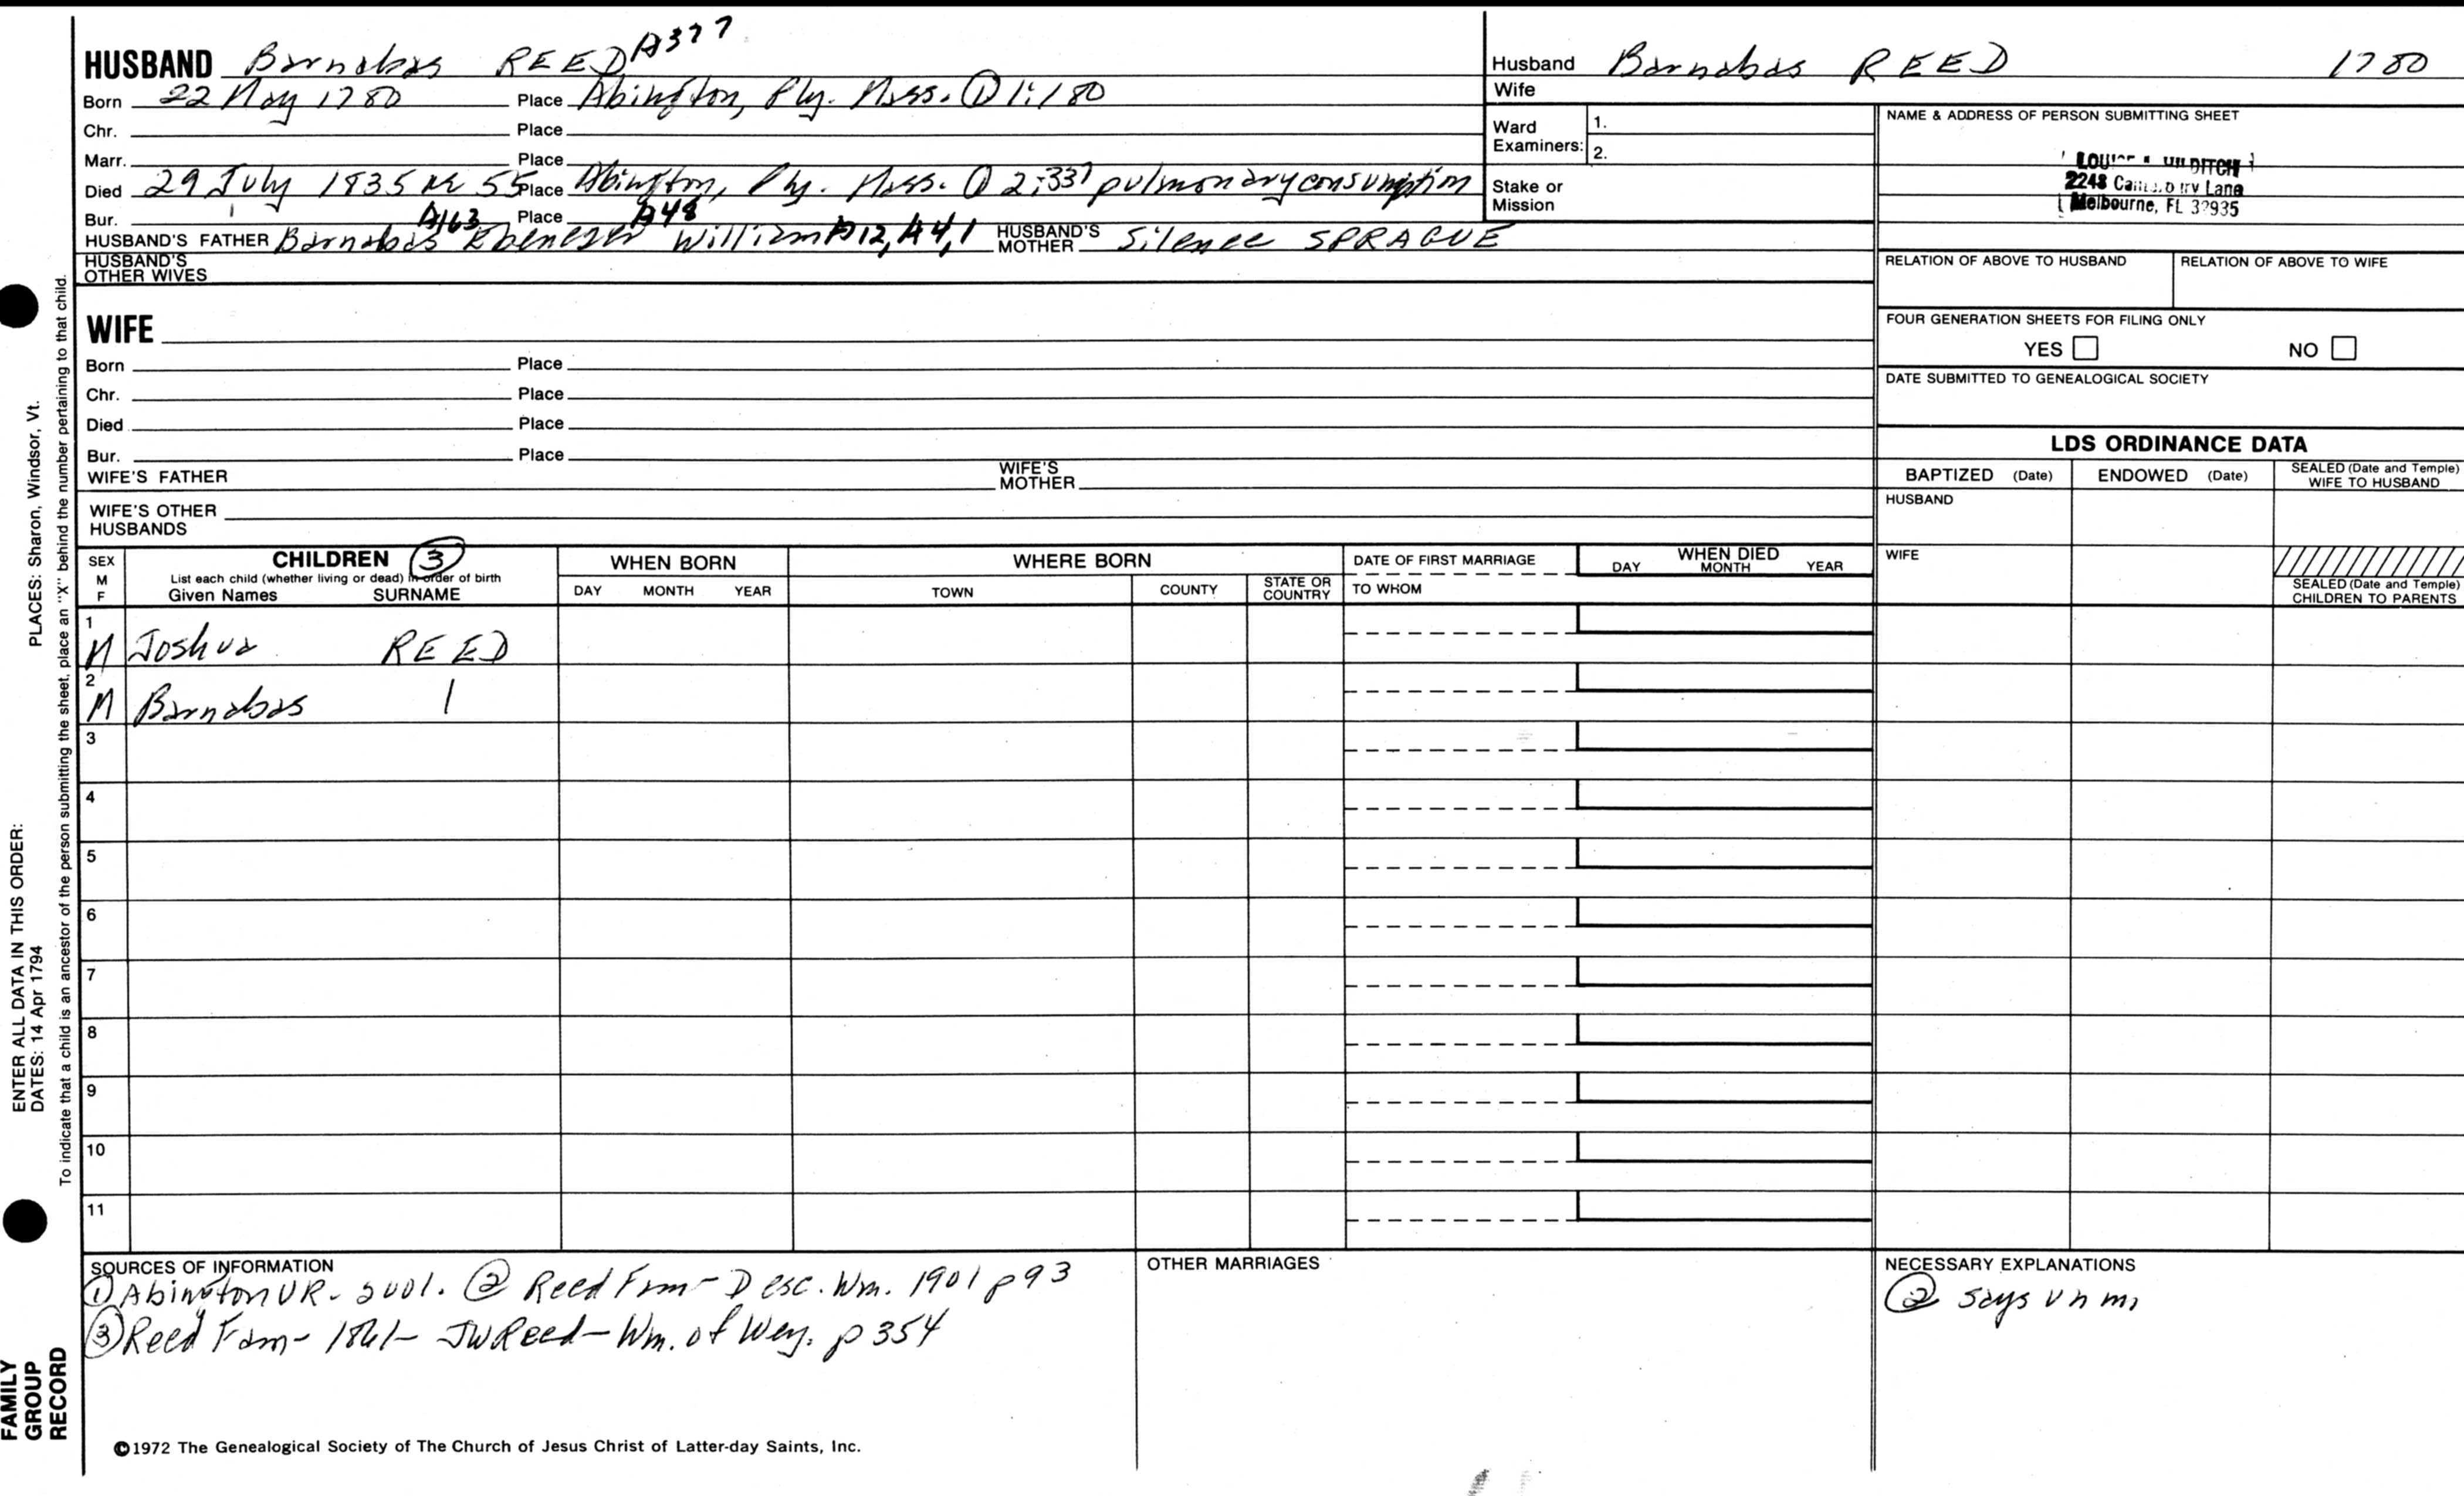 HUSBAND Barnabas REED A377
Born 22 May 1780 Place Abington, Ply. Mass. ① 1:180
Chr. Place
Marr. Place
Died 29 July 1835 ae 55 Place Abington, Ply. Mass. ① 2:337 pulmonary consumption
Bur. Place
A163 A48
HUSBAND'S FATHER Barnabas Ebenezer William A12, A4,1 HUSBAND'S MOTHER Silence SPRAGUE
HUSBAND'S OTHER WIVES
Husband Barnabas REED 1780
Wife
Ward Examiners: 1.
2.
Stake or Mission
NAME & ADDRESS OF PERSON SUBMITTING SHEET
2248 Lane
Melbourne, FL 32935
RELATION OF ABOVE TO HUSBAND RELATION OF ABOVE TO WIFE
FOUR GENERATION SHEETS FOR FILING ONLY
YES NO
DATE SUBMITTED TO GENEALOGICAL SOCIETY
WIFE
Born Place
Chr. Place
Died Place
Bur. Place
WIFE'S FATHER WIFE'S MOTHER
WIFE'S OTHER HUSBANDS
LDS ORDINANCE DATA
BAPTIZED (Date) ENDOWED (Date) SEALED (Date and Temple) WIFE TO HUSBAND
HUSBAND
WIFE
SEALED (Date and Temple) CHILDREN TO PARENTS
SEX M F
CHILDREN ③
List each child (whether living or dead) in order of birth
Given Names SURNAME
WHEN BORN
DAY MONTH YEAR
WHERE BORN
TOWN COUNTY STATE OR COUNTRY
DATE OF FIRST MARRIAGE
TO WHOM
WHEN DIED
DAY MONTH YEAR
1 M Joshua REED
2 M Barnabas |
3
4
5
6
7
8
9
10
11
SOURCES OF INFORMATION
① Abington VR - 2vol. ② Reed Fam - Desc. Wm. 1901 p 93
③ Reed Fam - 1861 - JW Reed - Wm. of Wey. p 354
OTHER MARRIAGES
NECESSARY EXPLANATIONS
② says unm.
©1972 The Genealogical Society of The Church of Jesus Christ of Latter-day Saints, Inc.
PLACES: Sharon, Windsor, Vt.
ENTER ALL DATA IN THIS ORDER:
DATES: 14 Apr 1794
To indicate that a child is an ancestor of the person submitting the sheet, place an "X" behind the number pertaining to that child.
FAMILY GROUP RECORD